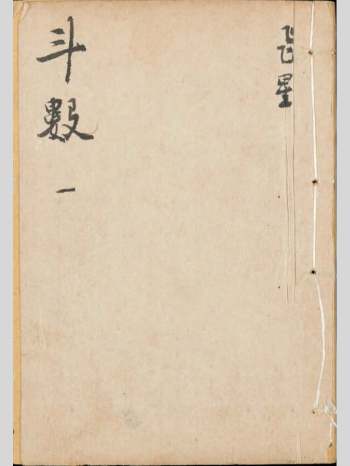 飞星
斗數
一